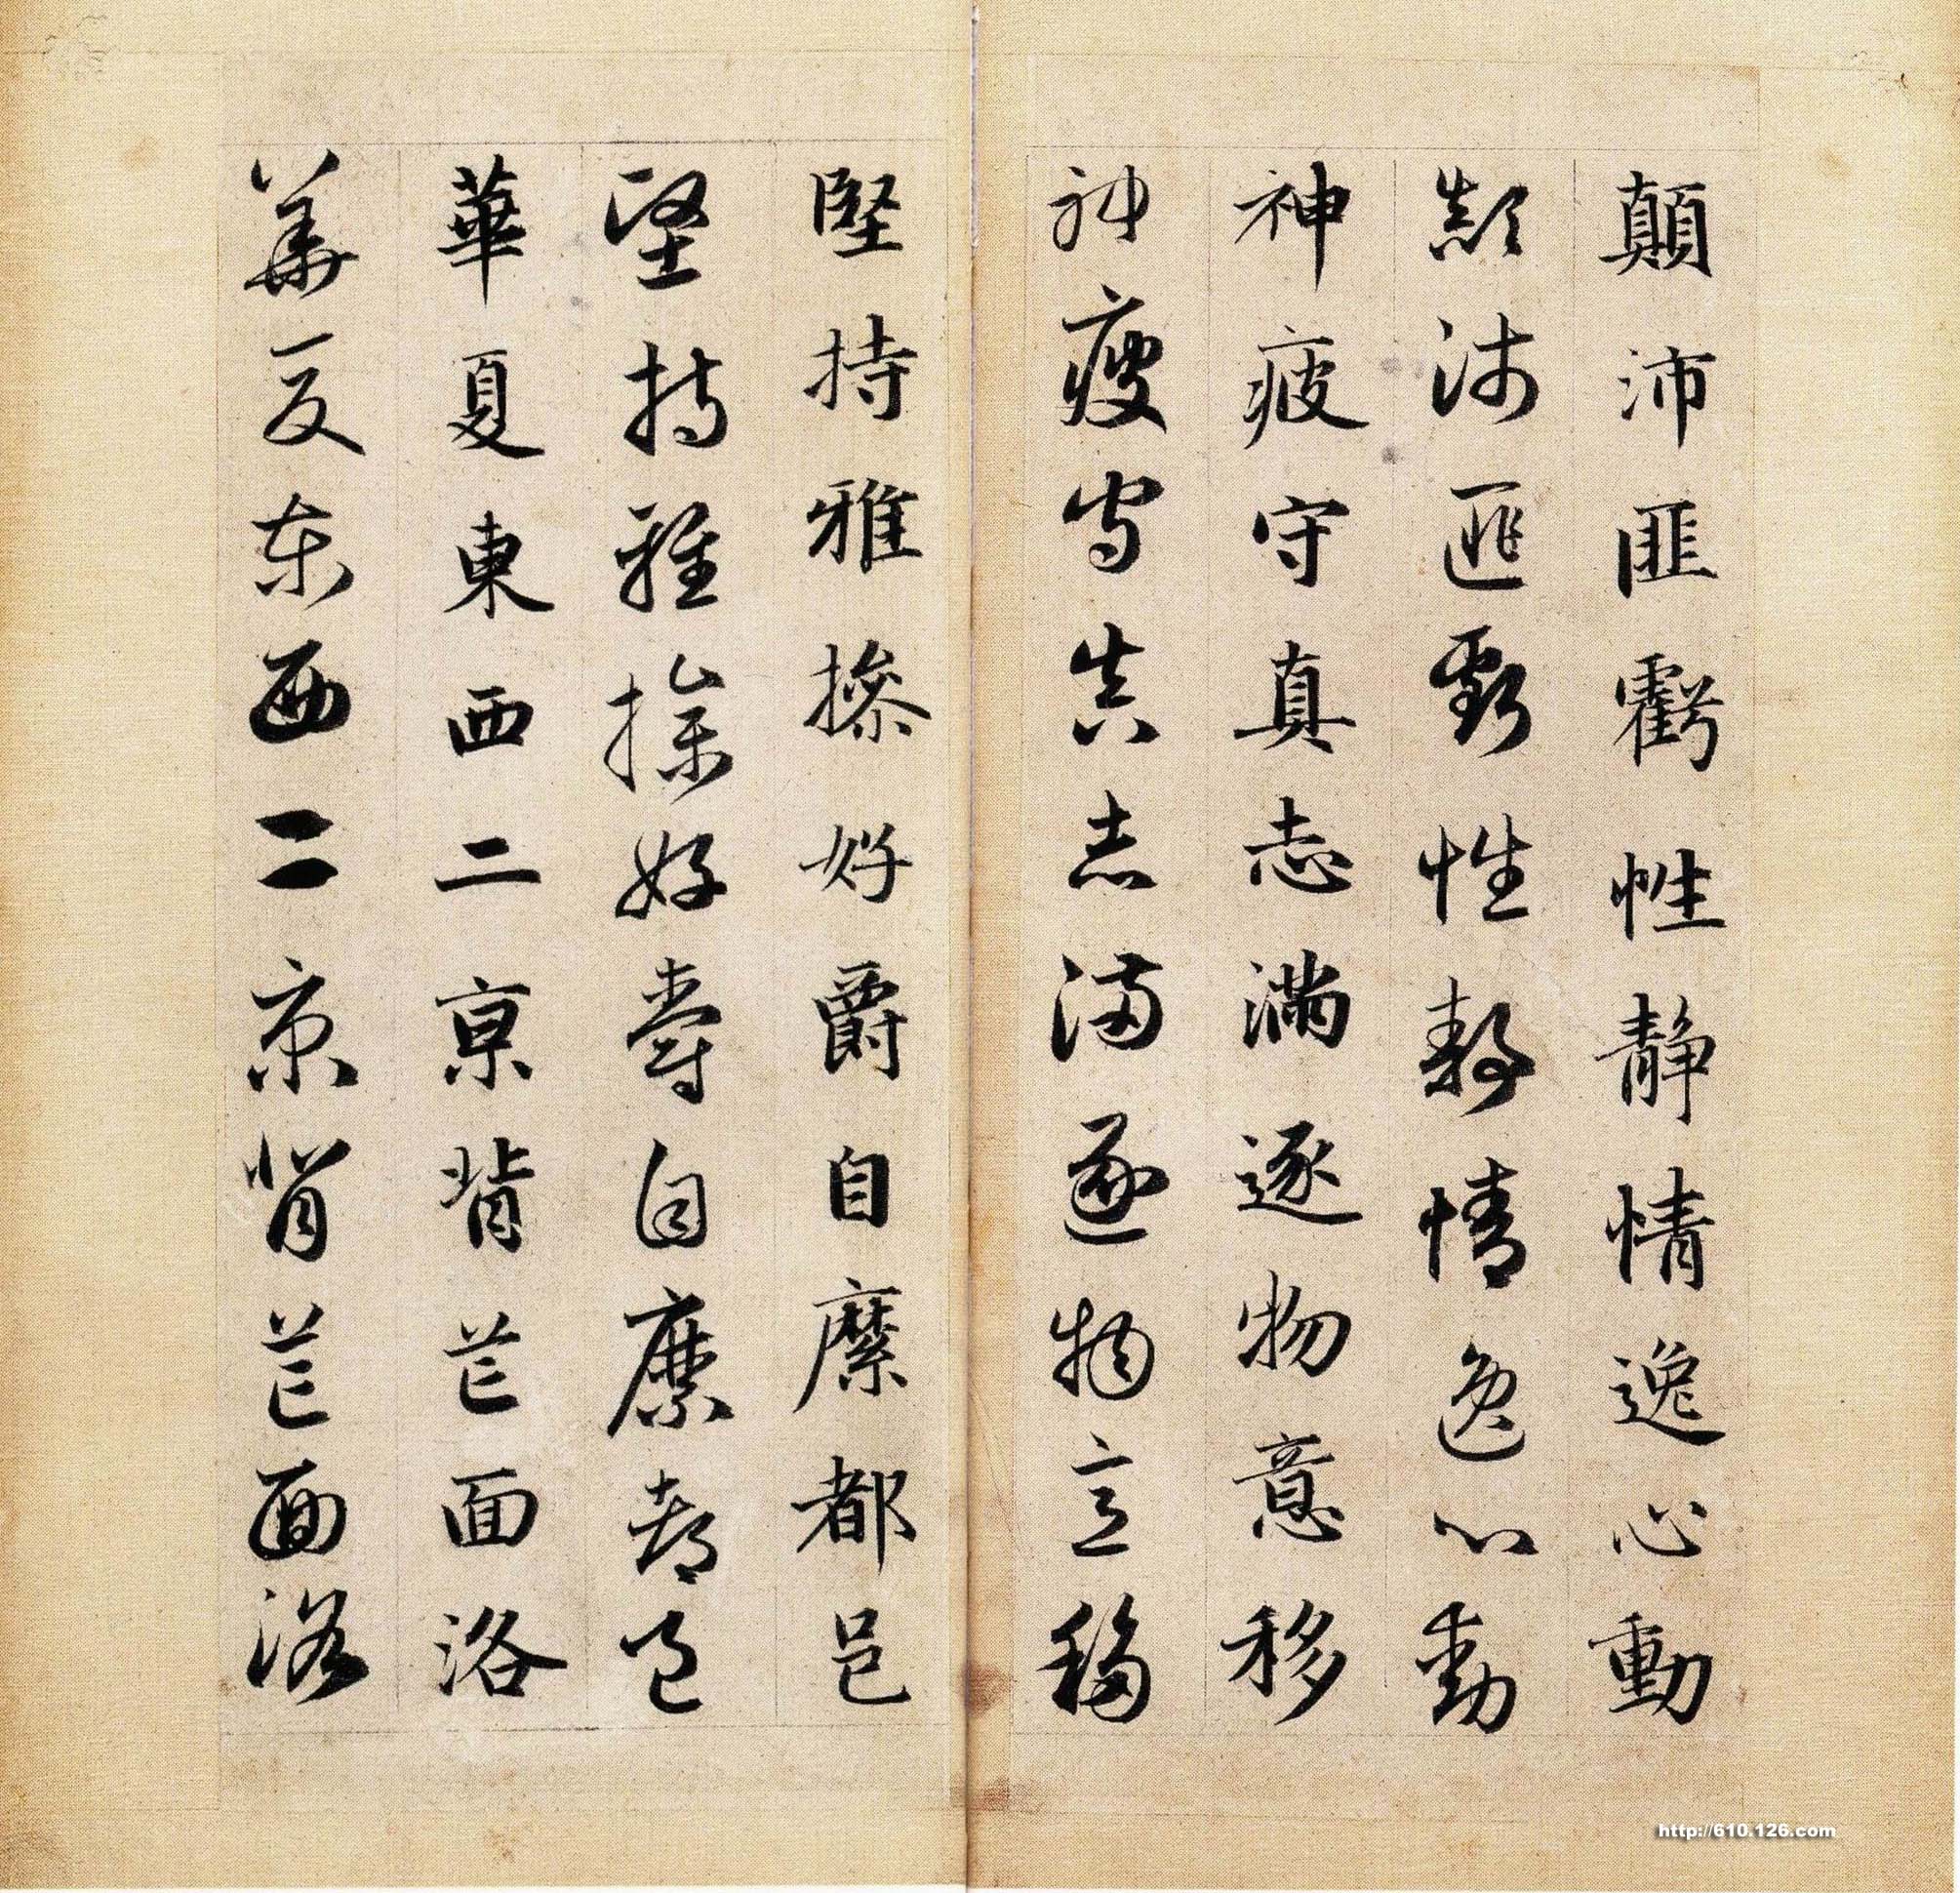 顛沛匪虧性静情逸心動
顛沛匪虧性静情逸心動
神疲守真志滿逐物意移
神疲守真志滿逐物意移
堅持雅操好爵自縻都邑
堅持雅操好爵自縻都邑
華夏東西二京背芒面洛
華夏東西二京背芒面洛
http://610.126.com